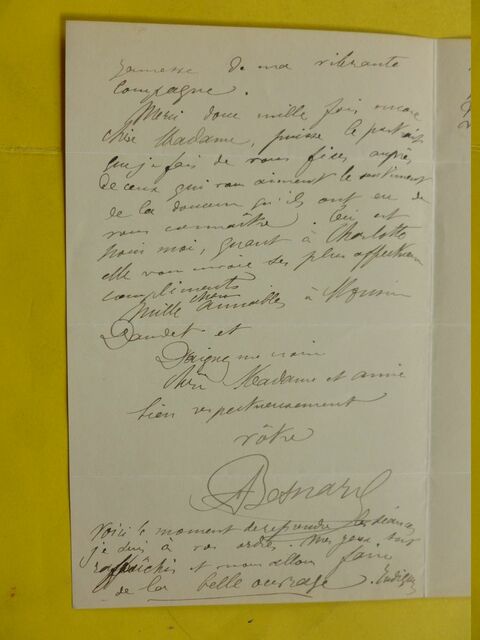 jeunesse de ma vibrante
compagne.
Merci donc mille fois encore
chère Madame, puisse le portrait
que je fais de vous fixer auprès
de ceux qui vous aiment le sentiment
de la douceur qu'ils ont eu de
vous connaître. Ceci est
pour moi, quant à Charlotte
elle vous envoie ses plus affectueux
compliments
Mille choses aimables à Monsieur
Daudet et
Daignez me croire
chère Madame et amie
bien respectueusement
vôtre
ABesnard
Voici le moment de reprendre les séances
je suis à vos ordres. Mes yeux sont
rafraîchis et nous allons faire
de la belle ouvrage.